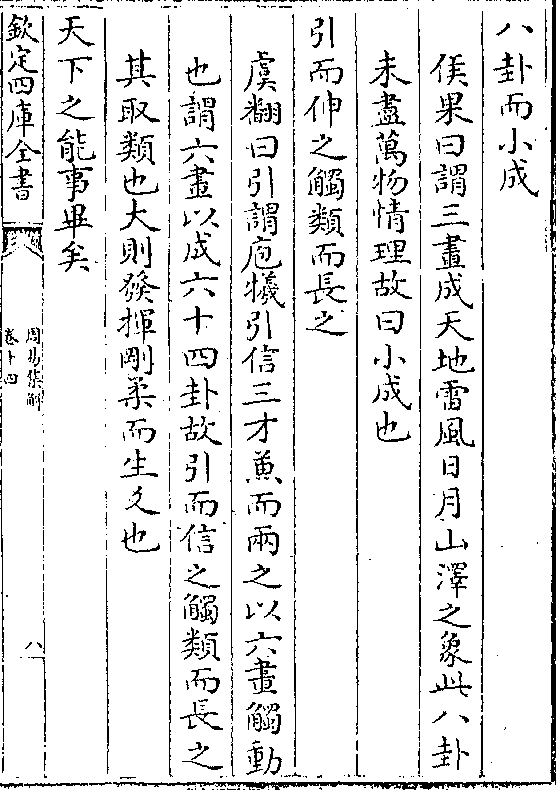 八卦而小成
侯果曰謂三畫成天地雷風日月山澤之象此八卦
未盡萬物情理故曰小成也
引而伸之觸類而長之
虞翻曰引謂庖犧引信三才兼而兩之以六畫觸動
也謂六畫以成六十四卦故引而信之觸類而長之
其取類也大則發揮剛柔而生爻也
天下之能事畢矣
欽定四庫全書
周易集解
卷十四
八